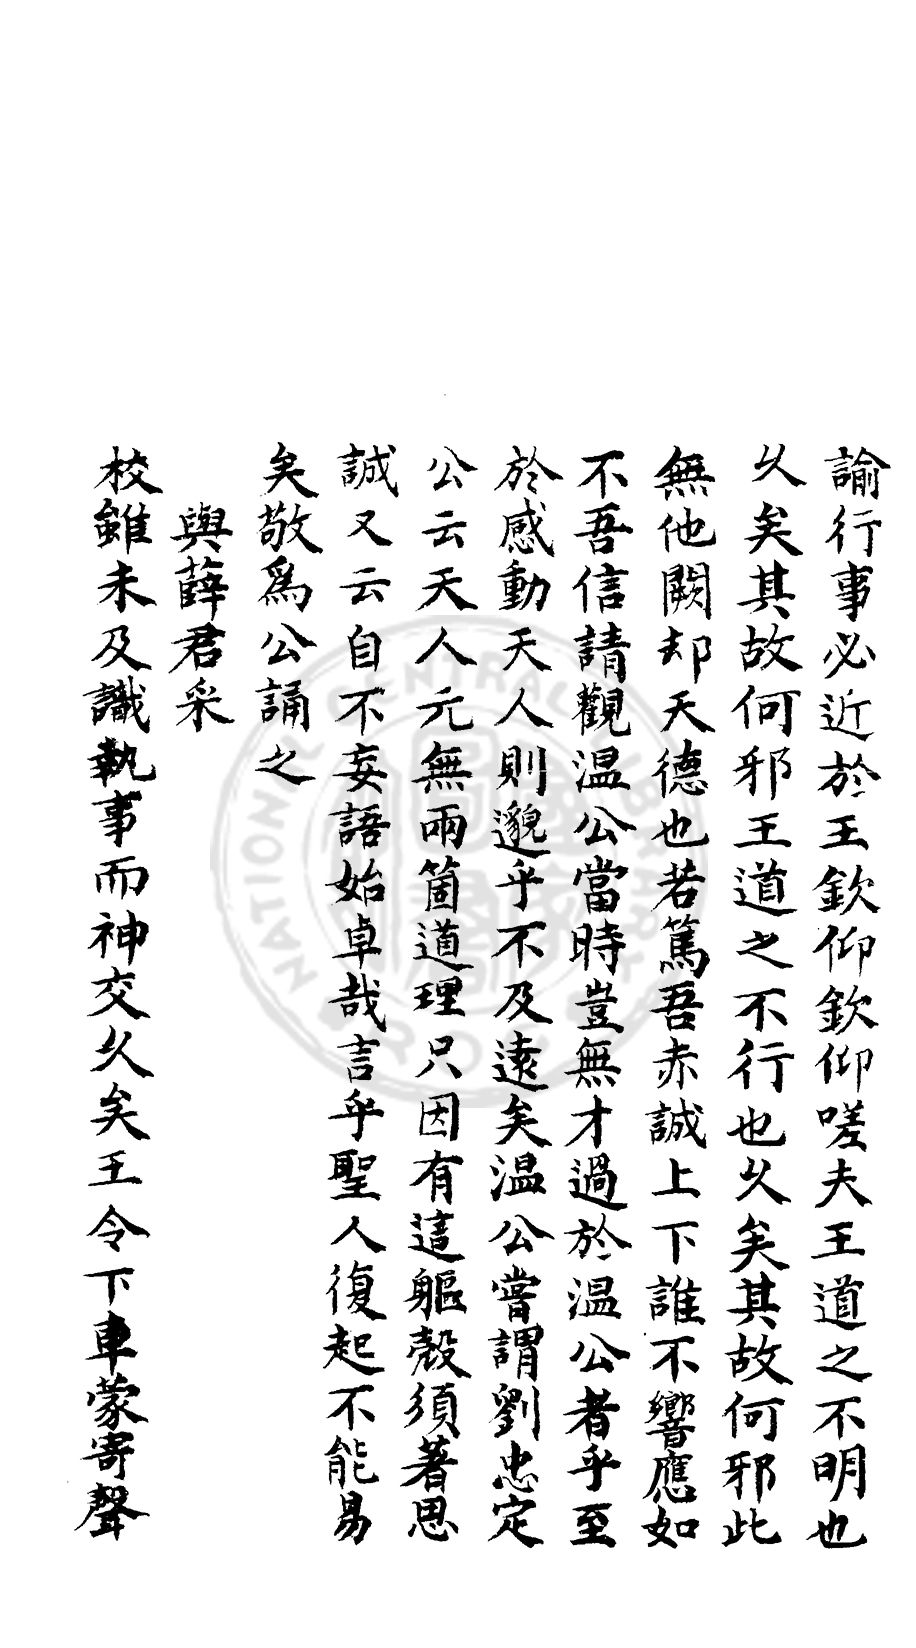 諭行事必近於王欽仰欽仰嗟夫王道之不明也
久矣其故何邪王道之不行也久矣其故何邪此
無他闕却天德也若篤吾赤誠上下誰不響應如
不吾信請觀温公當時豈無才過於温公者乎至
於感動天人則邈乎不及遠矣温公嘗謂劉忠定
公云天人元無兩箇道理只因有這軀殼須著思
誠又云自不妄語始卓哉言乎聖人復起不能易
矣敬爲公誦之
與薛君采
校雖未及識執事而神交久矣王令下車蒙寄聲
NATIONAL CENTRAL LIBRARY